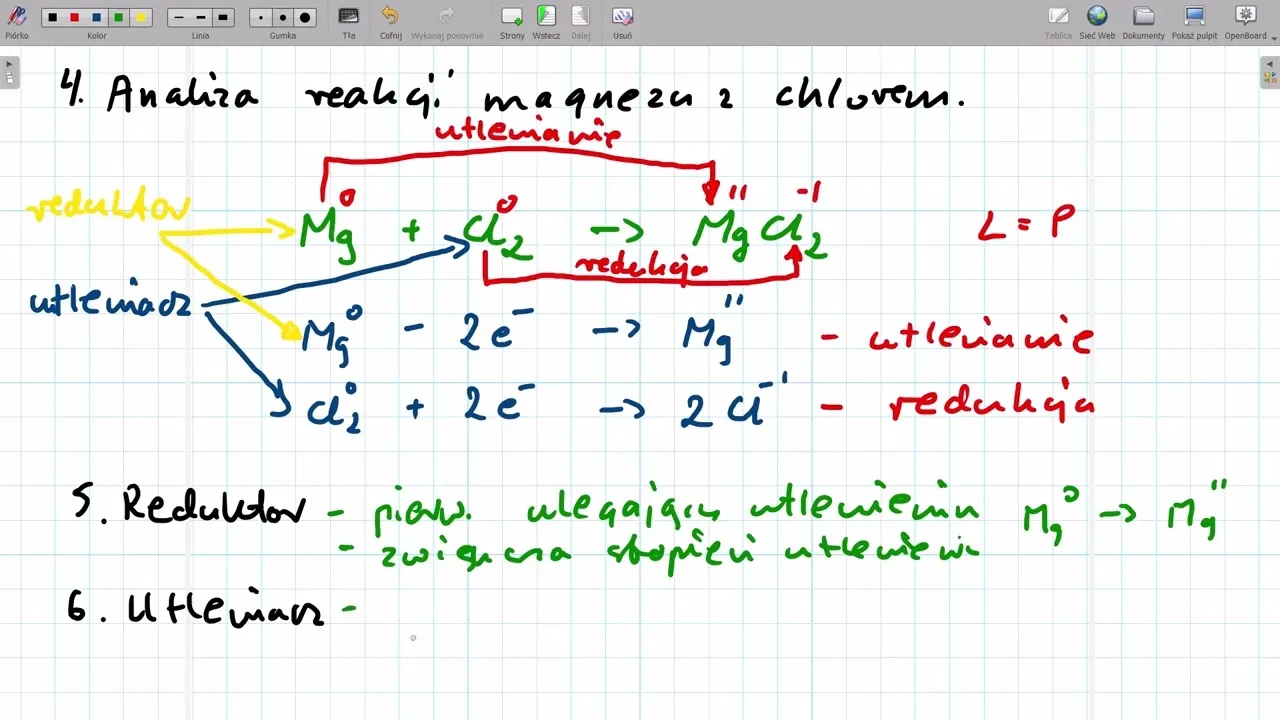 Piórko Kolor Linia Gumka Tła Cofnij Wykonaj ponownie Strony Wstecz Dalej Usuń Tablica Sieć Web Dokumenty Pokaż pulpit OpenBoard
4. Analiza reakcji magnezu z chlorem.
utlenianie
reduktor
Mg⁰ + Cl₂⁰ → MgᴵᴵCl₂⁻ᴵ L = P
redukcja
utleniacz
Mg⁰ - 2e⁻ → Mgᴵᴵ - utlenianie
Cl₂⁰ + 2e⁻ → 2Cl⁻ᴵ - redukcja
5. Reduktor - pierw. ulegający utlenieniu Mg⁰ → Mgᴵᴵ
- zwiększa stopień utlenienia
6. Utleniacz -